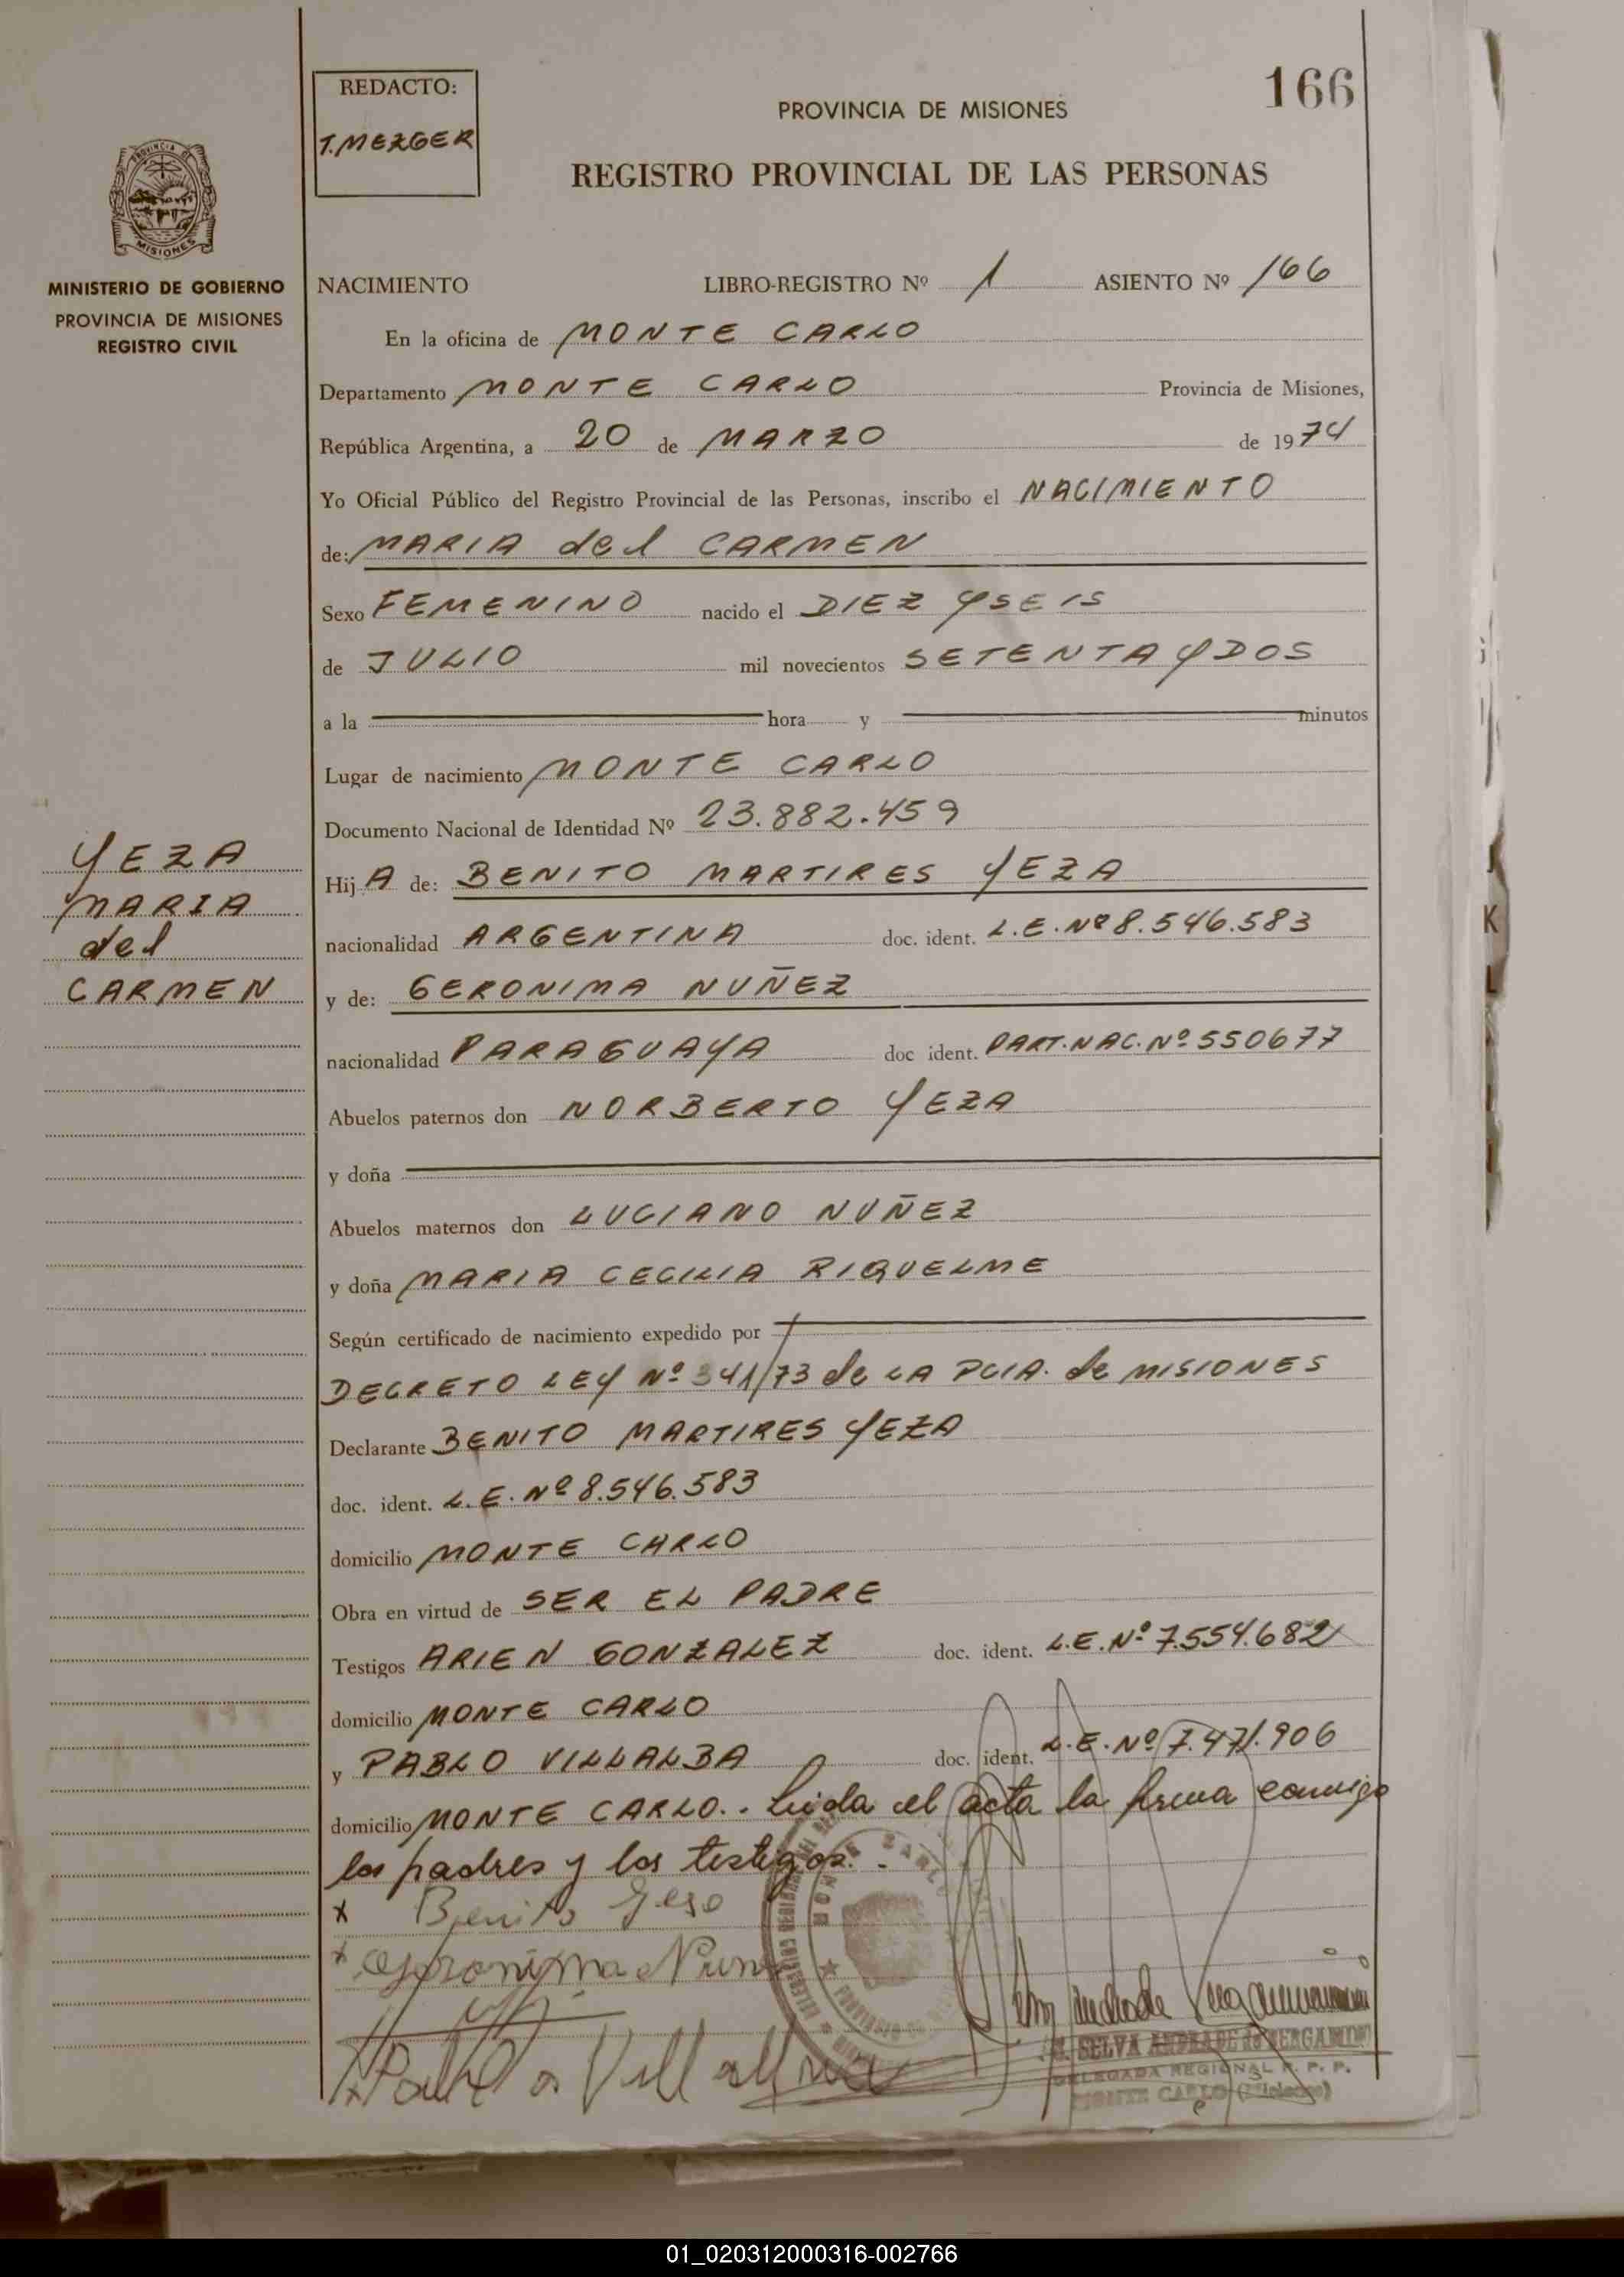 166
REDACTO:
T. MEZGER
PROVINCIA DE MISIONES
REGISTRO PROVINCIAL DE LAS PERSONAS
PROVINCIA DE
MISIONES
MINISTERIO DE GOBIERNO
PROVINCIA DE MISIONES
REGISTRO CIVIL
NACIMIENTO LIBRO-REGISTRO Nº 1 ASIENTO Nº 166
En la oficina de MONTE CARLO
Departamento MONTE CARLO Provincia de Misiones,
República Argentina, a 20 de MARZO de 1974
Yo Oficial Público del Registro Provincial de las Personas, inscribo el NACIMIENTO
de: MARIA del CARMEN
Sexo FEMENINO nacido el DIEZ Y SEIS
de JULIO mil novecientos SETENTA Y DOS
a la hora y minutos
Lugar de nacimiento MONTE CARLO
Documento Nacional de Identidad Nº 23.882.459
YEZA
MARIA
del
CARMEN
Hij A de: BENITO MARTIRES YEZA
nacionalidad ARGENTINA doc. ident. L.E. Nº 8.546.583
y de: GERONIMA NUÑEZ
nacionalidad PARAGUAYA doc ident. PART. NAC. Nº 550677
Abuelos paternos don NORBERTO YEZA
y doña
Abuelos maternos don LUCIANO NUÑEZ
y doña MARIA CECILIA RIQUELME
Según certificado de nacimiento expedido por
DECRETO LEY Nº 341/73 de LA PCIA. de MISIONES
Declarante BENITO MARTIRES YEZA
doc. ident. L.E. Nº 8.546.583
domicilio MONTE CARLO
Obra en virtud de SER EL PADRE
Testigos ARIEN GONZALEZ doc. ident. L.E. Nº 7.554.682
domicilio MONTE CARLO
y PABLO VILLALBA doc. ident. L.E. Nº 7.471.906
domicilio MONTE CARLO.. Leida el acta la firma conmigo
los padres y los testigos.-
x Benito Yeso
x Geronima Nun
Pablo Villalba
SELVA ANDRADE de BERGAMINO
DELEGADA REGIONAL R. P. P.
MONTE CARLO (Misiones)
01_020312000316-002766